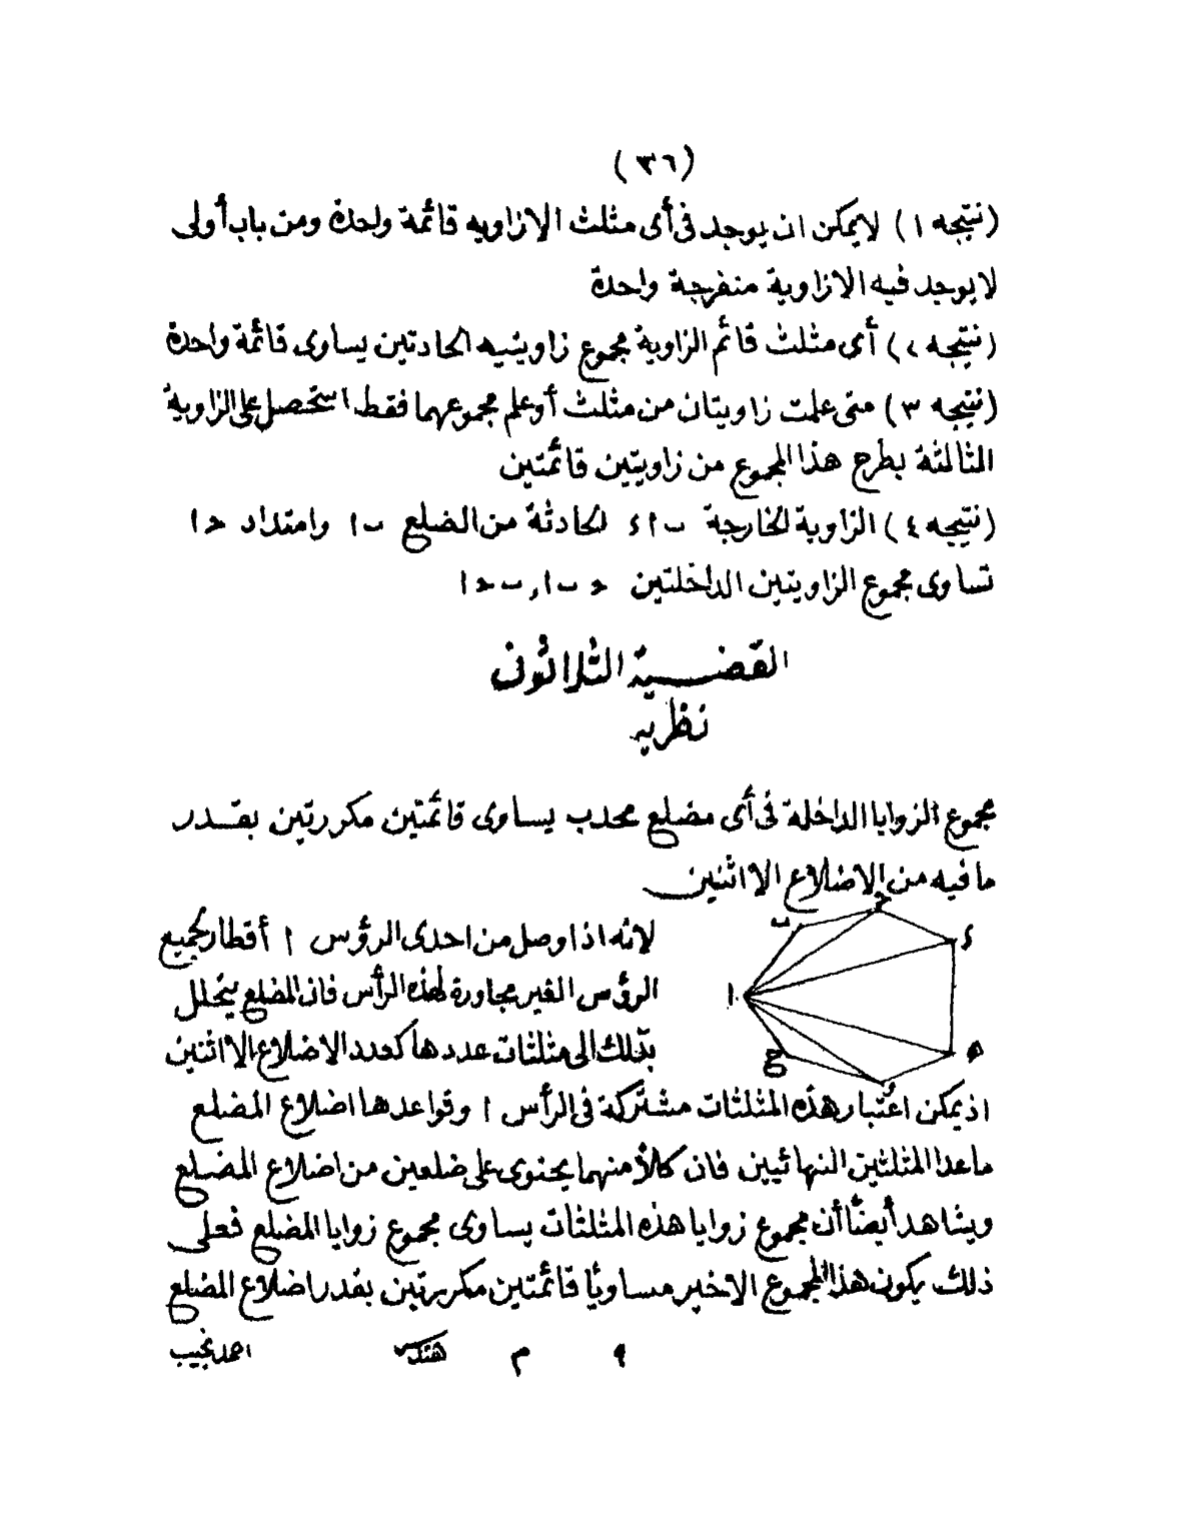 (٣٦)
(نتيجه ١) لا يمكن ان يوجد فى أى مثلث الا زاويه قائمة واحدة ومن باب أولى
لا يوجد فيه الا زاوية منفرجة واحدة
(نتيجه ٢) أى مثلث قائم الزاوية مجموع زاويتيه الحادتين يساوى قائمة واحدة
(نتيجه ٣) متى علمت زاويتان من مثلث أو علم مجموعهما فقط استحصل على الزاوية
الثالثة بطرح هذا المجموع من زاويتين قائمتين
(نتيجه ٤) الزاوية الخارجة ب ا د الحادثة من الضلع ب ا وامتداد ح ا
تساوى مجموع الزاويتين الداخلتين ح ب ا , ب ح ا
القضية الثلاثون
نظريه
مجموع الزوايا الداخلة فى أى مضلع محدب يساوى قائمتين مكررتين بقدر
ما فيه من الاضلاع الا اثنين
لانه اذا وصل من احدى الرؤس ا أقطار لجميع
الرؤس الغير مجاورة لهذه الرأس فان المضلع يتحلل
بذلك الى مثلثات عددها كعدد الاضلاع الا اثنين
ب
ح
د
ا
ه
و
ج
اذ يمكن اعتبار هذه المثلثات مشتركة فى الرأس ا وقواعدها اضلاع المضلع
ما عدا المثلثين النهائيين فان كلاً منهما يحتوى على ضلعين من اضلاع المضلع
ويشاهد أيضاً أن مجموع زوايا هذه المثلثات يساوى مجموع زوايا المضلع فعلى
ذلك يكون هذا المجموع الاخير مساوياً قائمتين مكررتين بقدر اضلاع المضلع
٩ م هندسه احمد نجيب